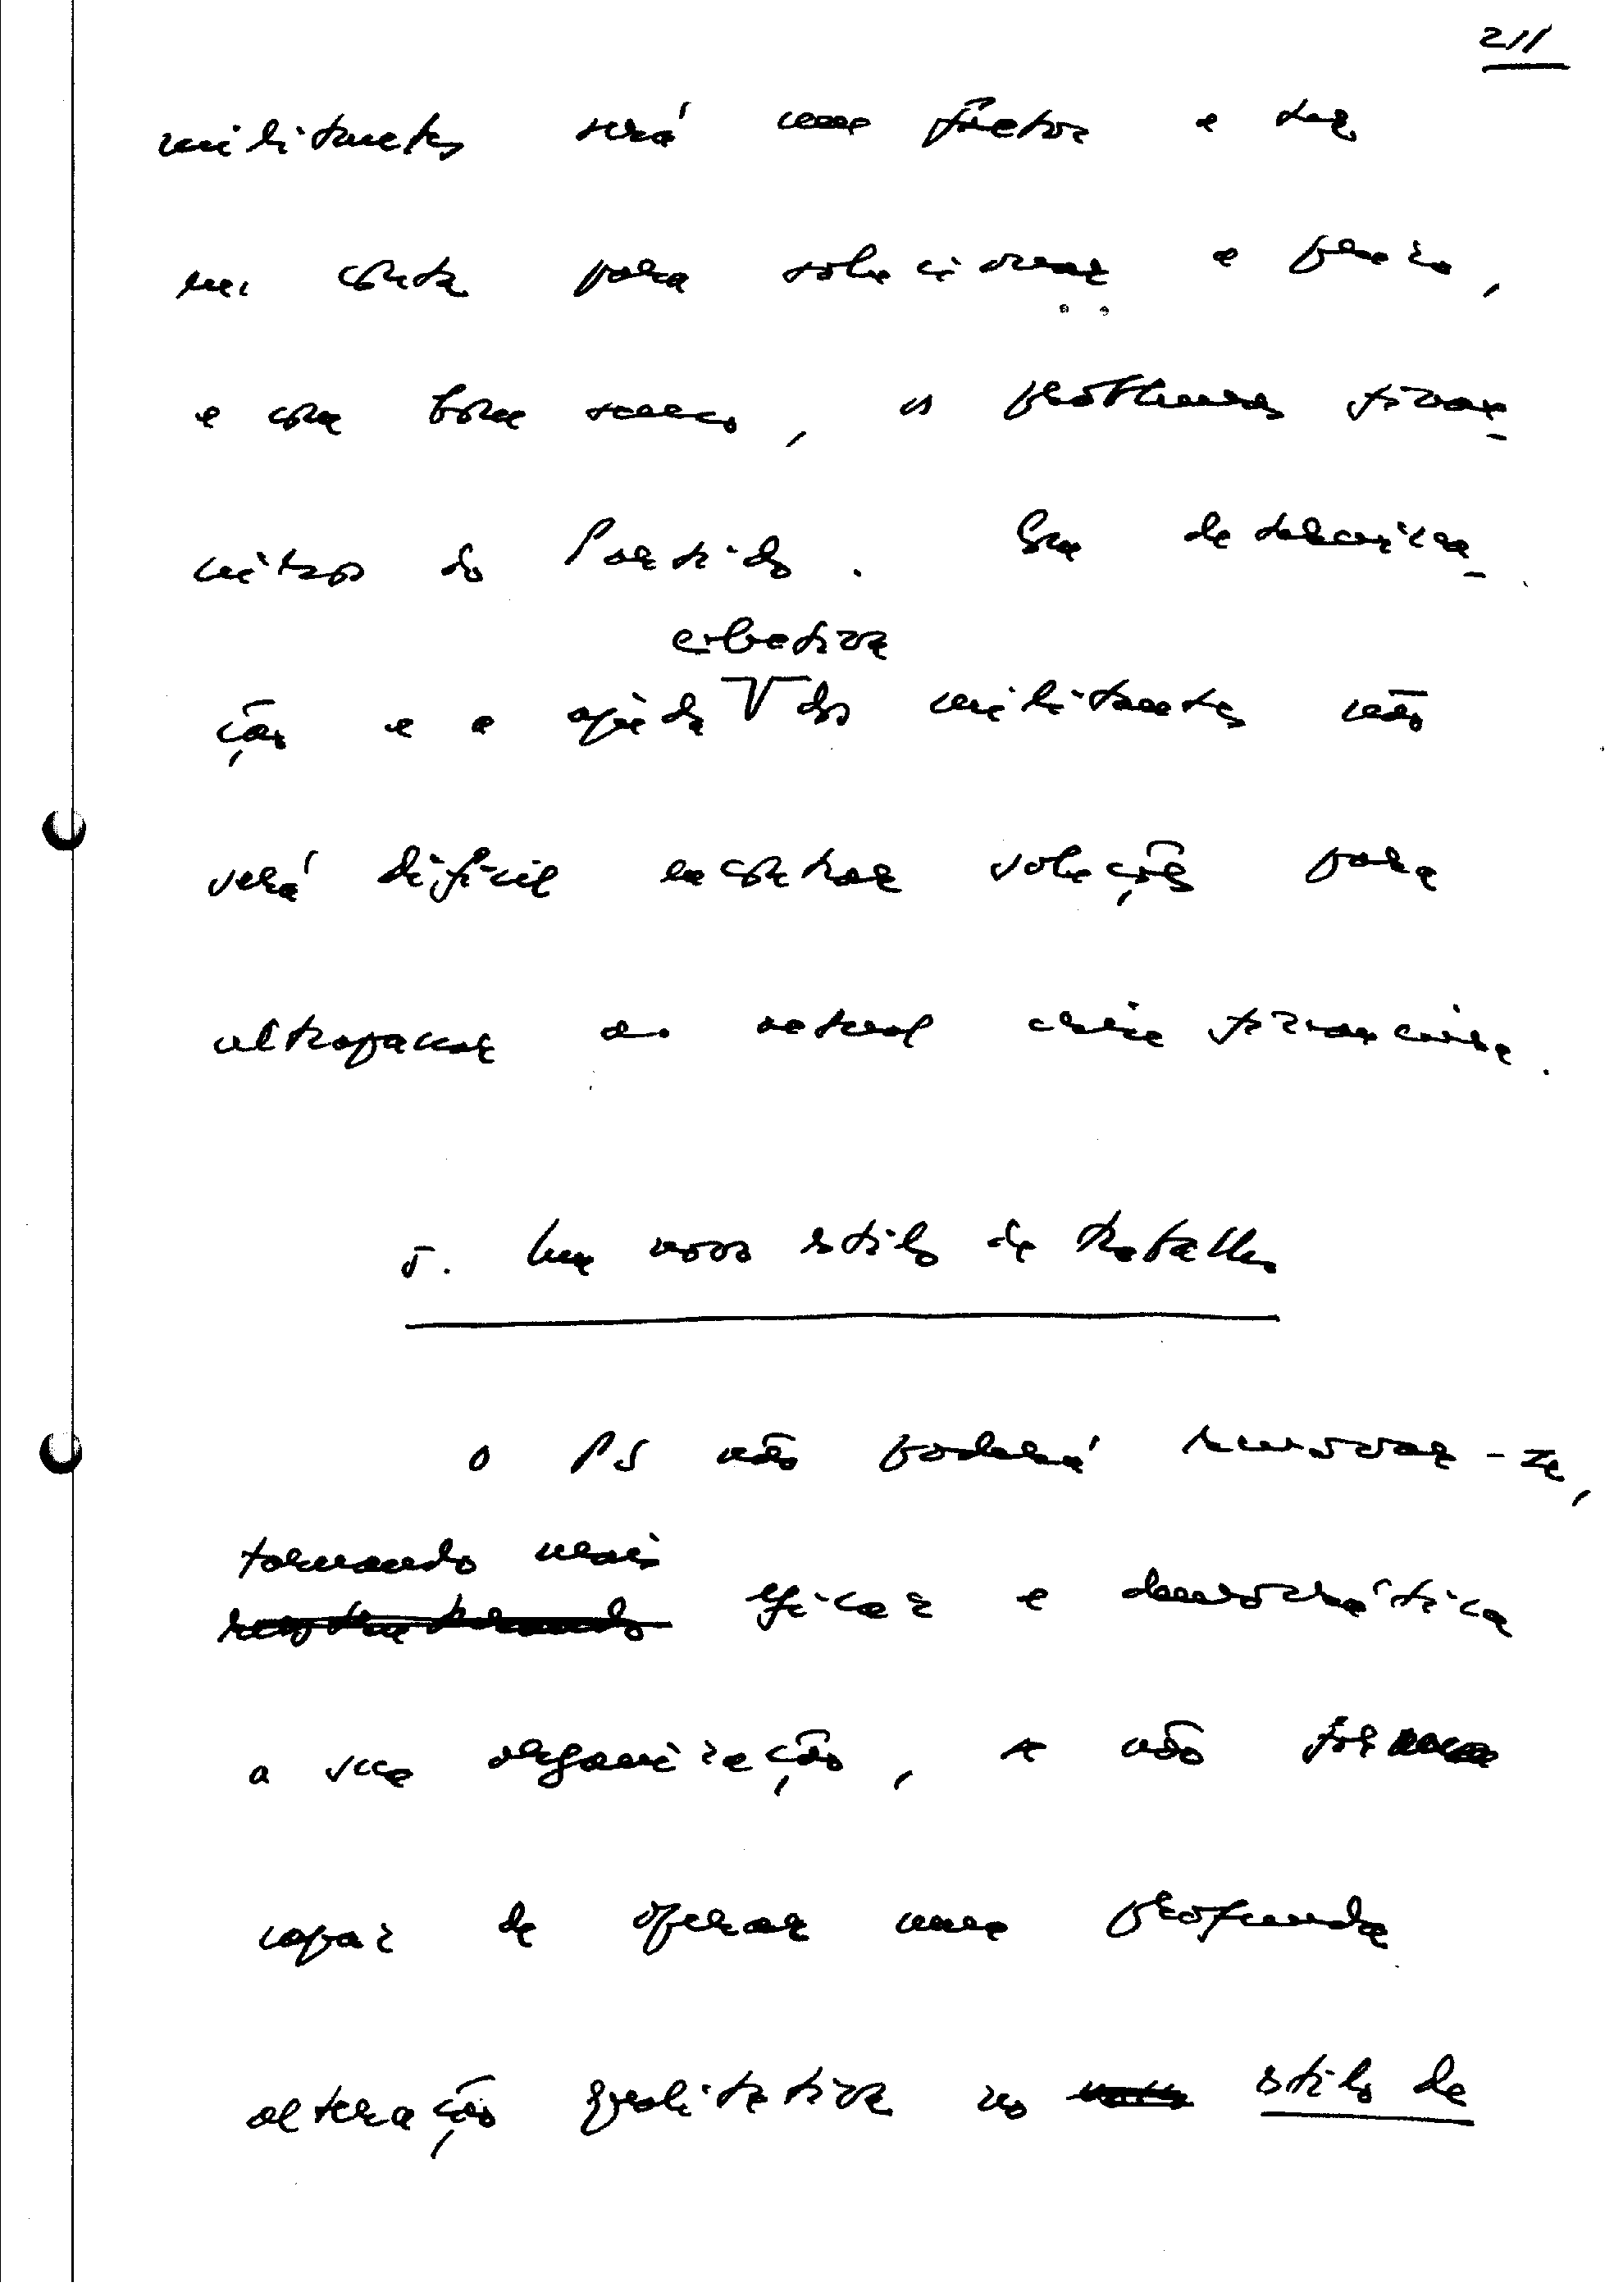 211
militantes será um factor a ter
em conta para solucionar a prazo,
e com bom senso, os problemas finan-
ceiros do Partido. Com determina-
ção e a ajuda efectiva dos militantes não
será difícil encontrar soluções para
ultrapassar a actual crise financeira.
5. Um novo estilo de trabalho
O PS não poderá renovar-se,
tornando mais
eficaz e democrática
a sua organização, se não for
capaz de operar uma profunda
alteração qualitativa no estilo de